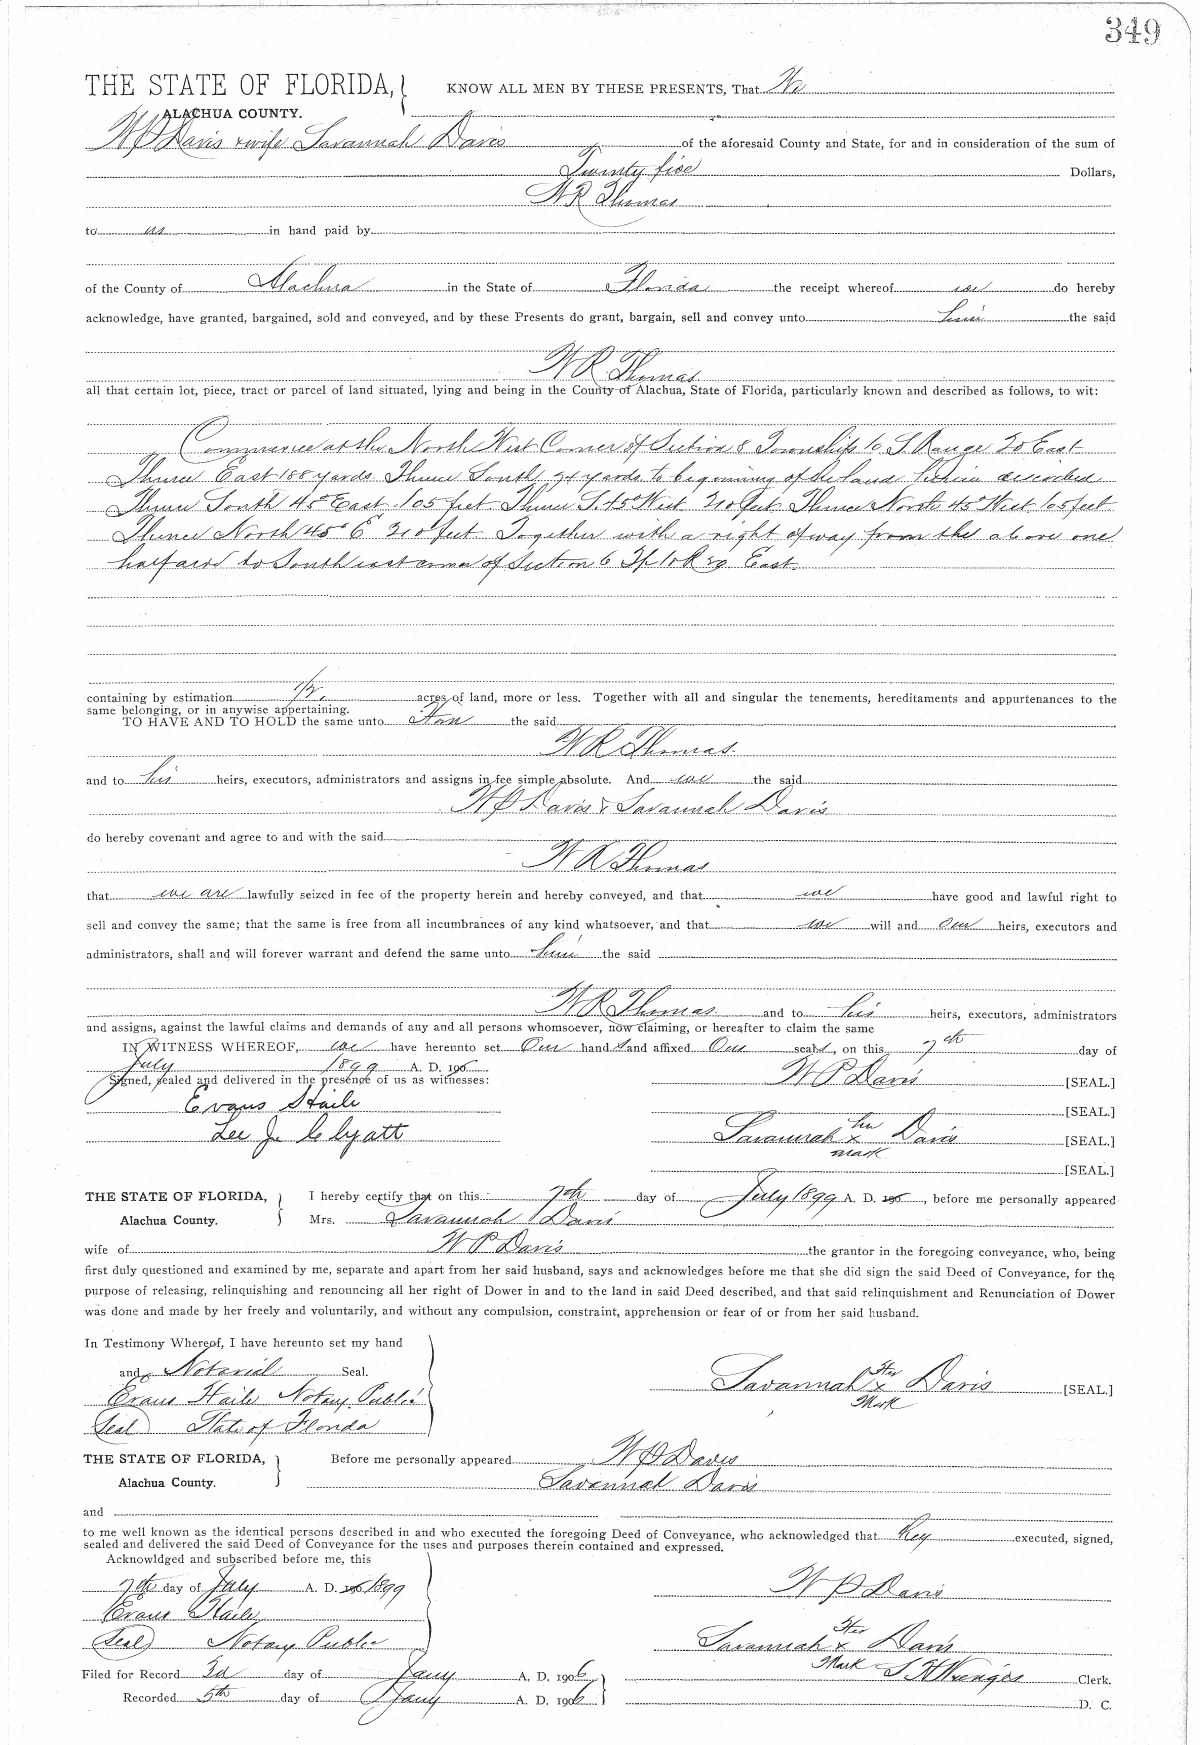 349
THE STATE OF FLORIDA,
KNOW ALL MEN BY THESE PRESENTS, That We
ALACHUA COUNTY.
W P Davis & wife Savannah Davis of the aforesaid County and State, for and in consideration of the sum of
Twenty five Dollars,
W R Thomas
to us in hand paid by
of the County of Alachua in the State of Florida the receipt whereof we do hereby
acknowledge, have granted, bargained, sold and conveyed, and by these Presents do grant, bargain, sell and convey unto him the said
W R Thomas
all that certain lot, piece, tract or parcel of land situated, lying and being in the County of Alachua, State of Florida, particularly known and described as follows, to wit:
Commence at the North West Corner of Section 8 Township 10 S. Range 20 East
Thence East 188 yards Thence South 24 yards to beginning of the land herein described
Thence South 45° East 105 feet Thence S. 45° West 210 feet Thence North 45° West 105 feet
Thence North 45° E 210 feet. Together with a right of way from the above one
half acre to South east corner of Section 6 Tp 10 R 20 East.
containing by estimation 1/2 acres of land, more or less. Together with all and singular the tenements, hereditaments and appurtenances to the
same belonging, or in anywise appertaining.
TO HAVE AND TO HOLD the same unto him the said
W R Thomas
and to his heirs, executors, administrators and assigns in fee simple absolute. And we the said
W P Davis & Savannah Davis
do hereby covenant and agree to and with the said
W R Thomas
that we are lawfully seized in fee of the property herein and hereby conveyed, and that we have good and lawful right to
sell and convey the same; that the same is free from all incumbrances of any kind whatsoever, and that we will and our heirs, executors and
administrators, shall and will forever warrant and defend the same unto him the said
W R Thomas and to his heirs, executors, administrators
and assigns, against the lawful claims and demands of any and all persons whomsoever, now claiming, or hereafter to claim the same
IN WITNESS WHEREOF, we have hereunto set Our hands and affixed Our seals, on this 7th day of
July 1899 A. D. 190
Signed, sealed and delivered in the presence of us as witnesses: W P Davis [SEAL.]
Evans Haile [SEAL.]
Lee J. Clyatt Savannah her x mark Davis [SEAL.]
[SEAL.]
THE STATE OF FLORIDA, I hereby certify that on this 7th day of July 1899 A. D. 190 , before me personally appeared
Alachua County. Mrs. Savannah Davis
wife of W P Davis the grantor in the foregoing conveyance, who, being
first duly questioned and examined by me, separate and apart from her said husband, says and acknowledges before me that she did sign the said Deed of Conveyance, for the
purpose of releasing, relinquishing and renouncing all her right of Dower in and to the land in said Deed described, and that said relinquishment and Renunciation of Dower
was done and made by her freely and voluntarily, and without any compulsion, constraint, apprehension or fear of or from her said husband.
In Testimony Whereof, I have hereunto set my hand
and Notarial Seal.
Savannah Her x Mark Davis [SEAL.]
Evans Haile Notary Public
Seal State of Florida
THE STATE OF FLORIDA, Before me personally appeared W P Davis
Alachua County. Savannah Davis
and
to me well known as the identical persons described in and who executed the foregoing Deed of Conveyance, who acknowledged that they executed, signed,
sealed and delivered the said Deed of Conveyance for the uses and purposes therein contained and expressed.
Acknowldged and subscribed before me, this
7th day of July A. D. 190 1899 W P Davis
Evans Haile
Seal Notary Public Savannah Her x Mark Davis
Filed for Record 3d day of Jany A. D. 1906 Clerk.
Recorded 5th day of Jany A. D. 1906 D. C.